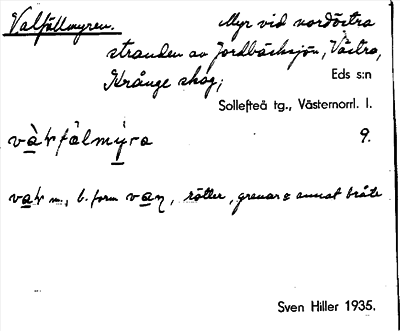 Valfällmyren. Myr vid nordöstra
stranden av Jordbäcksjön, Västra,
Krånge skog; Eds s:n
Sollefteå tg., Västernorrl. l.
9.
m., b. form van, rötter, grenar & annat bråte
Sven Hiller 1935.